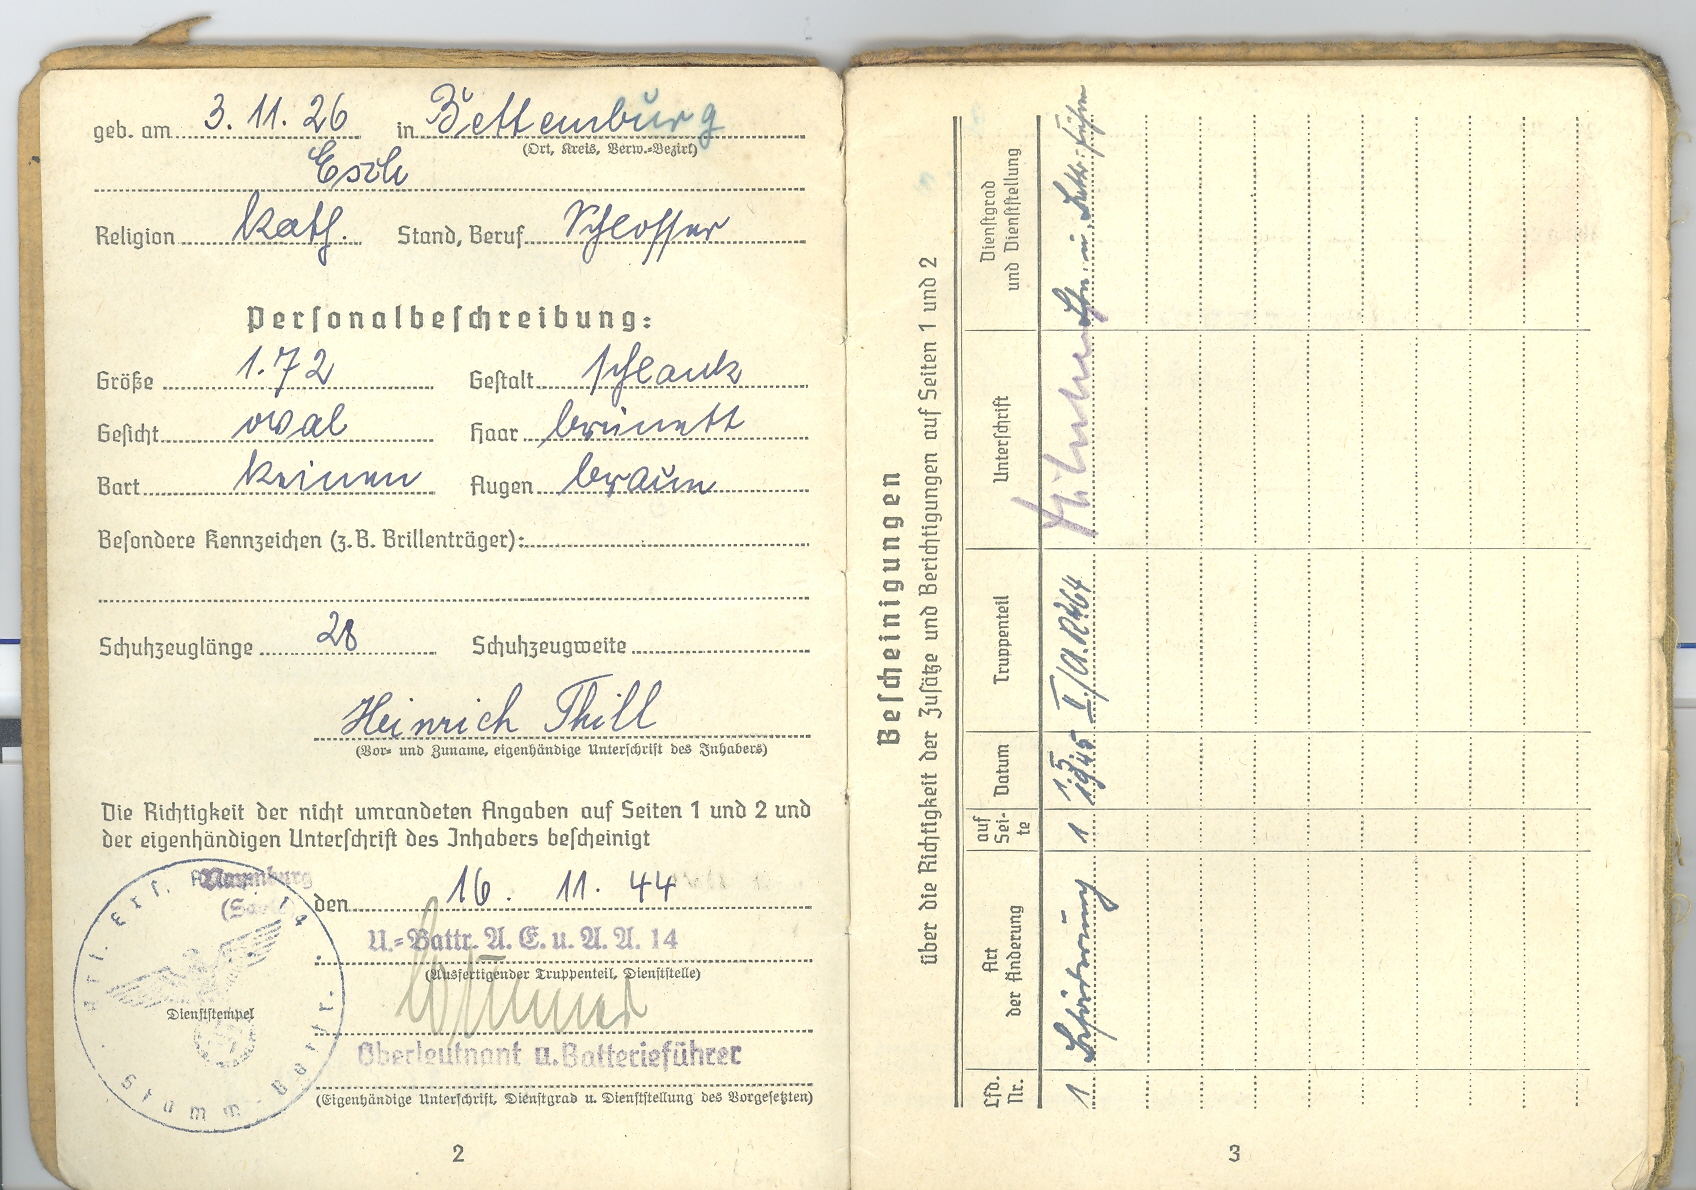 geb. am 3. 11. 26 in Bettemburg
(Ort, Kreis, Verw.-Bezirk)
Esch
Religion kath. Stand, Beruf Schlosser
Personalbeschreibung:
Größe 1.72 Gestalt schlank
Gesicht oval Haar brünett
Bart keinen Augen braun
Besondere Kennzeichen (z. B. Brillenträger):
Schuhzeuglänge 28 Schuhzeugweite
Heinrich Thill
(Vor- und Zuname, eigenhändige Unterschrift des Inhabers)
Die Richtigkeit der nicht umrandeten Angaben auf Seiten 1 und 2 und
der eigenhändigen Unterschrift des Inhabers bescheinigt
Naumburg
(Saale) den 16. 11. 44
U.=Battr. A. E. u. A. A. 14
(Ausfertigender Truppenteil, Dienststelle)
Art. Ers. 14
Stamm-Battr.
Dienststempel
Oberleutnant u. Batterieführer
(Eigenhändige Unterschrift, Dienstgrad u. Dienststellung des Vorgesetzten)
2
Bescheinigungen
über die Richtigkeit der Zusätze und Berichtigungen auf Seiten 1 und 2
Lfd. Nr. Art der Änderung auf Sei-te Datum Truppenteil Unterschrift Dienstgrad und Dienststellung
1 Beförderung 1 1.5. 1945 II./A.R. 464 u. Battr.-Führer
3